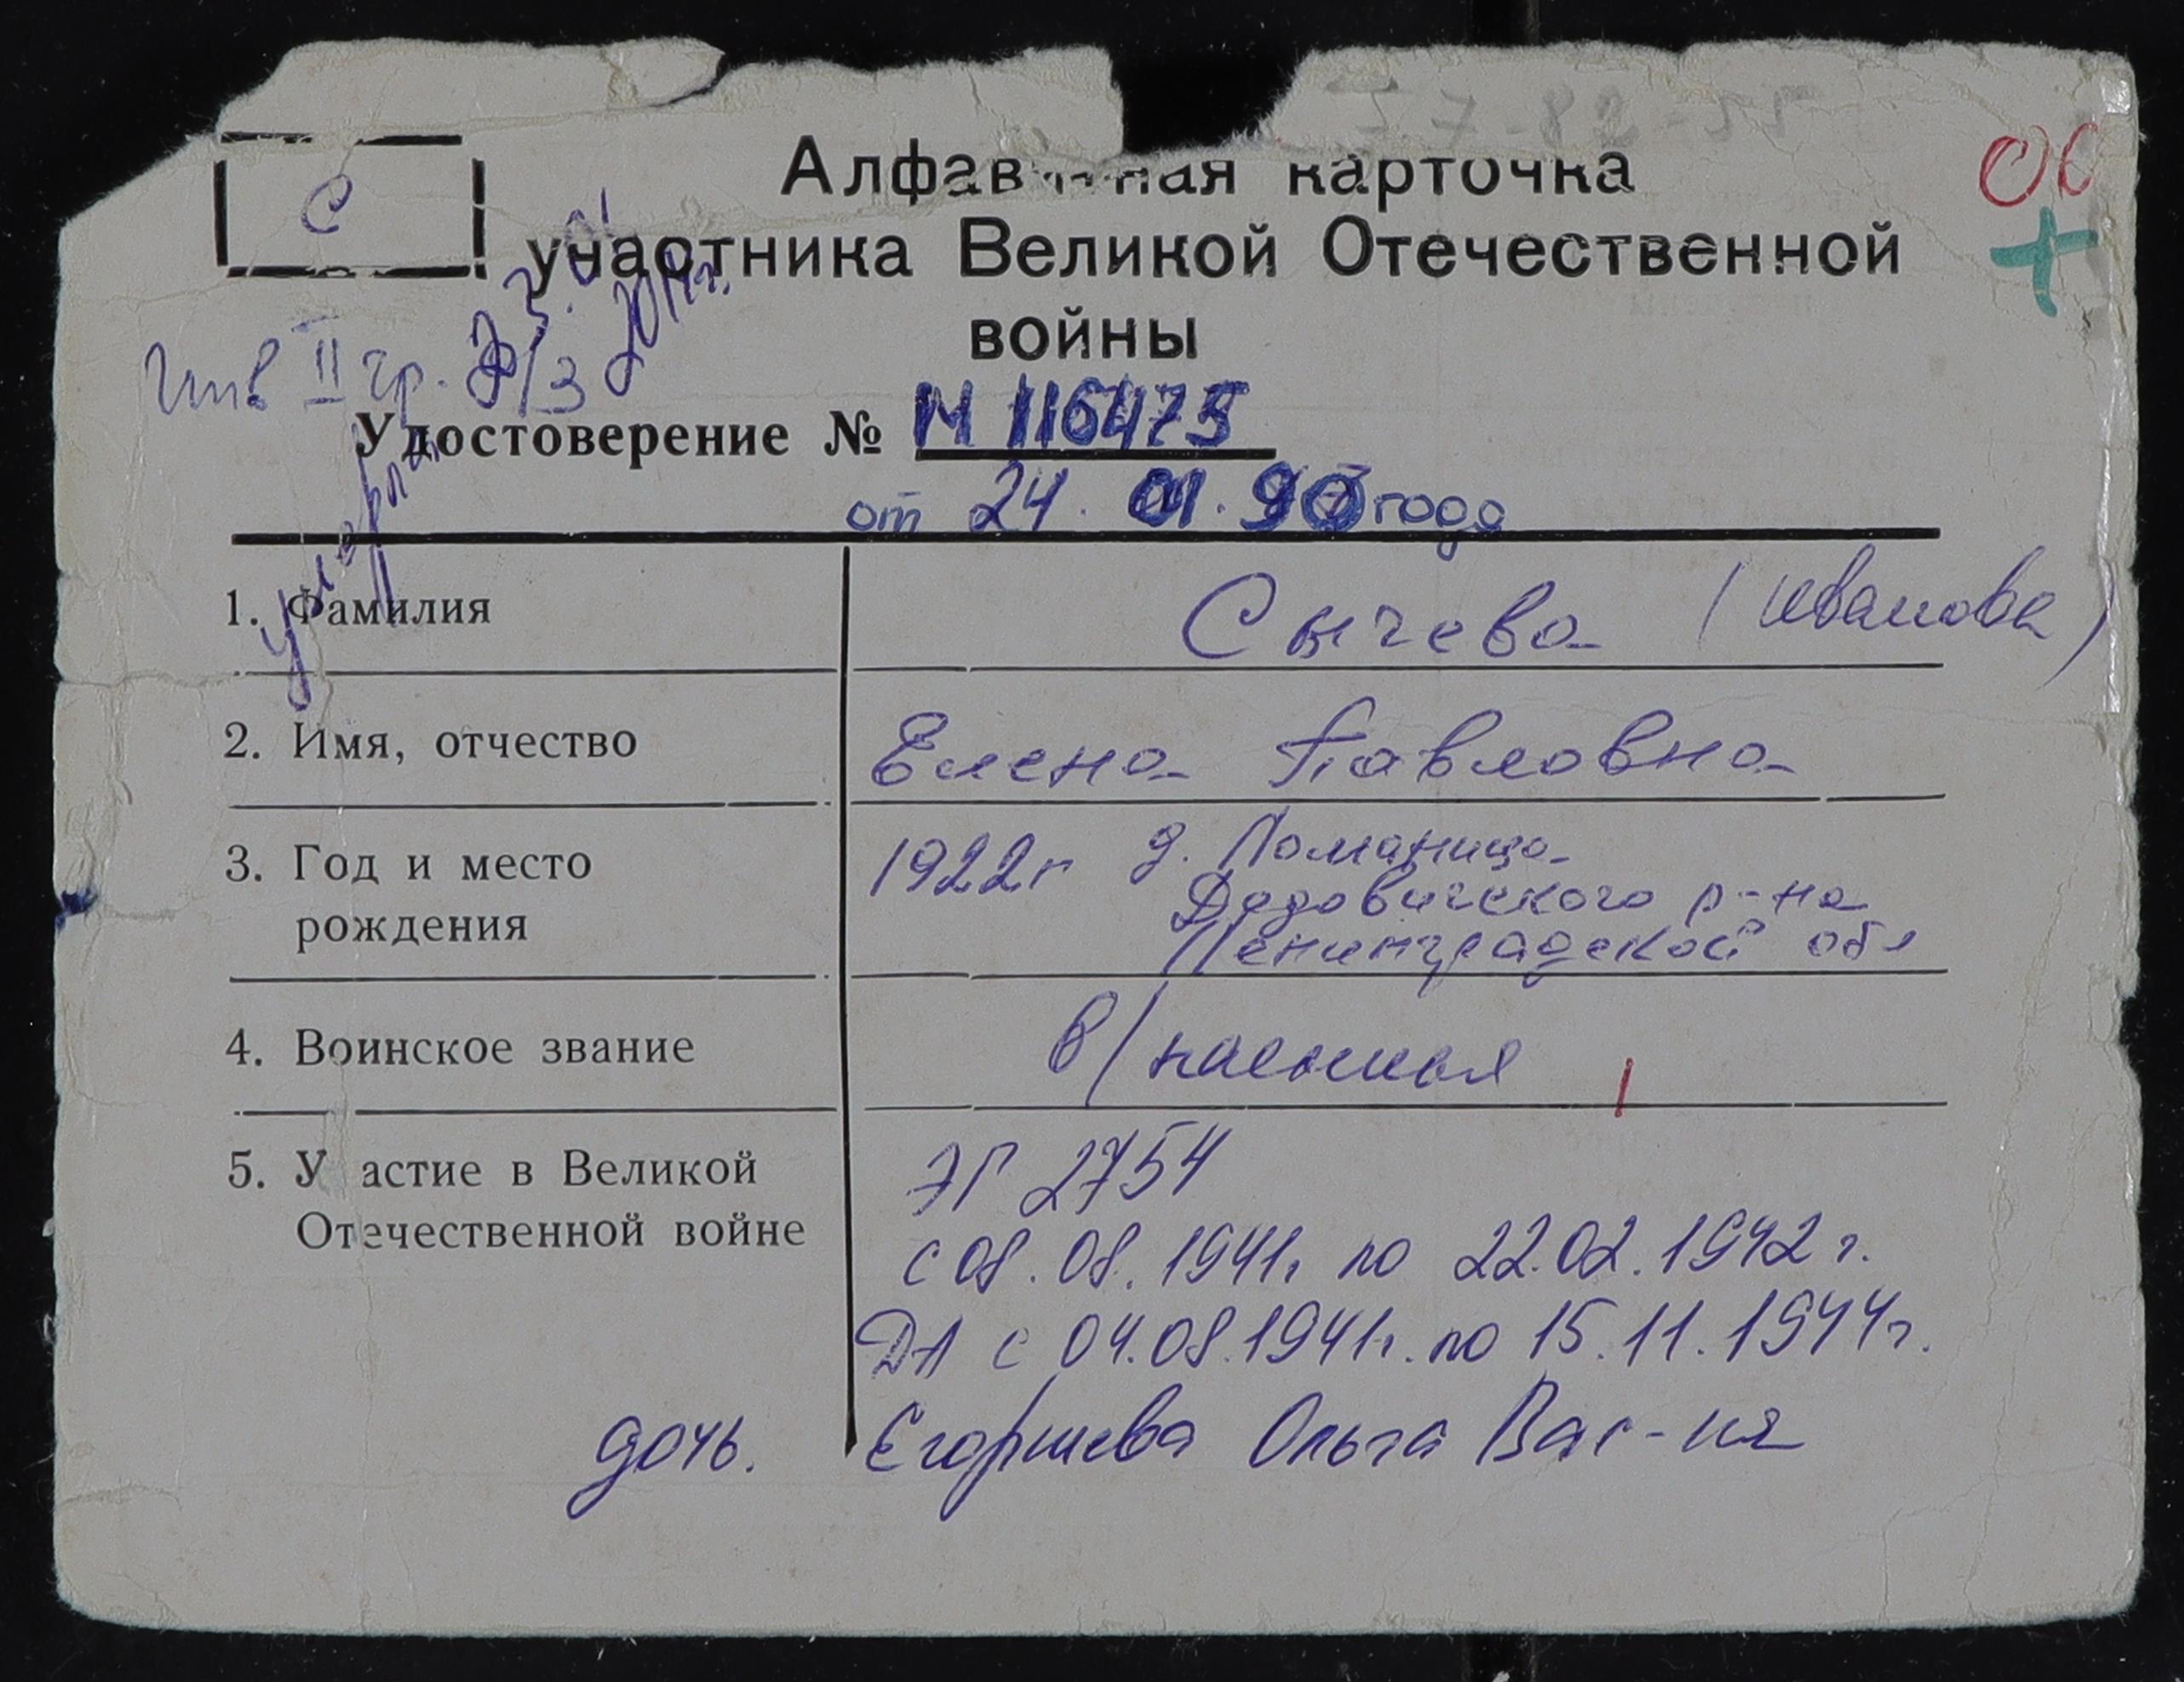 С
Алфав ная карточка
участника Великой Отечественной
войны
ОС
+
Инв II гр. 3/3
умерла 23.01 2014г.
Удостоверение № М 116475
от 24. 01. 90 года
1. Фамилия Сычева (Иванова)
2. Имя, отчество Елена Павловна
3. Год и место 1922г д. Ломаница
рождения Дедовичского р-на
Ленинградской обл
4. Воинское звание в/наемная
5. У астие в Великой ЭГ 2754
Отечественной войне с 08.08.1941г по 22.02.1942г.
ДА с 04.08.1941г. по 15.11.1944г.
дочь. Егоршева Ольга Вас-на